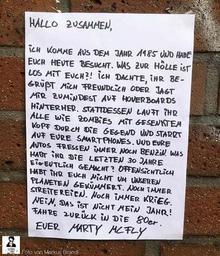 HALLO ZUSAMMEN,
ICH KOMME AUS DEM JAHR 1985 UND HABE
EUCH HEUTE BESUCHT. WAS ZUR HÖLLE IST
LOS MIT EUCH?! ICH DACHTE, IHR BE-
GRÜßT MICH FREUNDLICH ODER JAGT
MIR ZUMINDEST AUF HOVERBOARDS
HINTERHER. STATTDESSEN LAUFT IHR
ALLE WIE ZOMBIES MIT GESENKTEM
KOPF DURCH DIE GEGEND UND STARRT
AUF EURE SMARTPHONES. UND EURE
AUTOS FRESSEN IMMER NOCH BENZIN. WAS
HABT IHR DIE LETZTEN 30 JAHRE
EIGENTLICH GEMACHT? OFFENSICHTLICH
HABT IHR EUCH NICHT UM UNSEREN
PLANETEN GEKÜMMERT. NOCH IMMER
STREITEREIEN. NOCH IMMER KRIEG.
NEIN, DAS IST NICHT MEIN JAHR!
FAHRE ZURÜCK IN DIE 80er.
EUER MARTY MCFLY
Foto von Markus Brandl